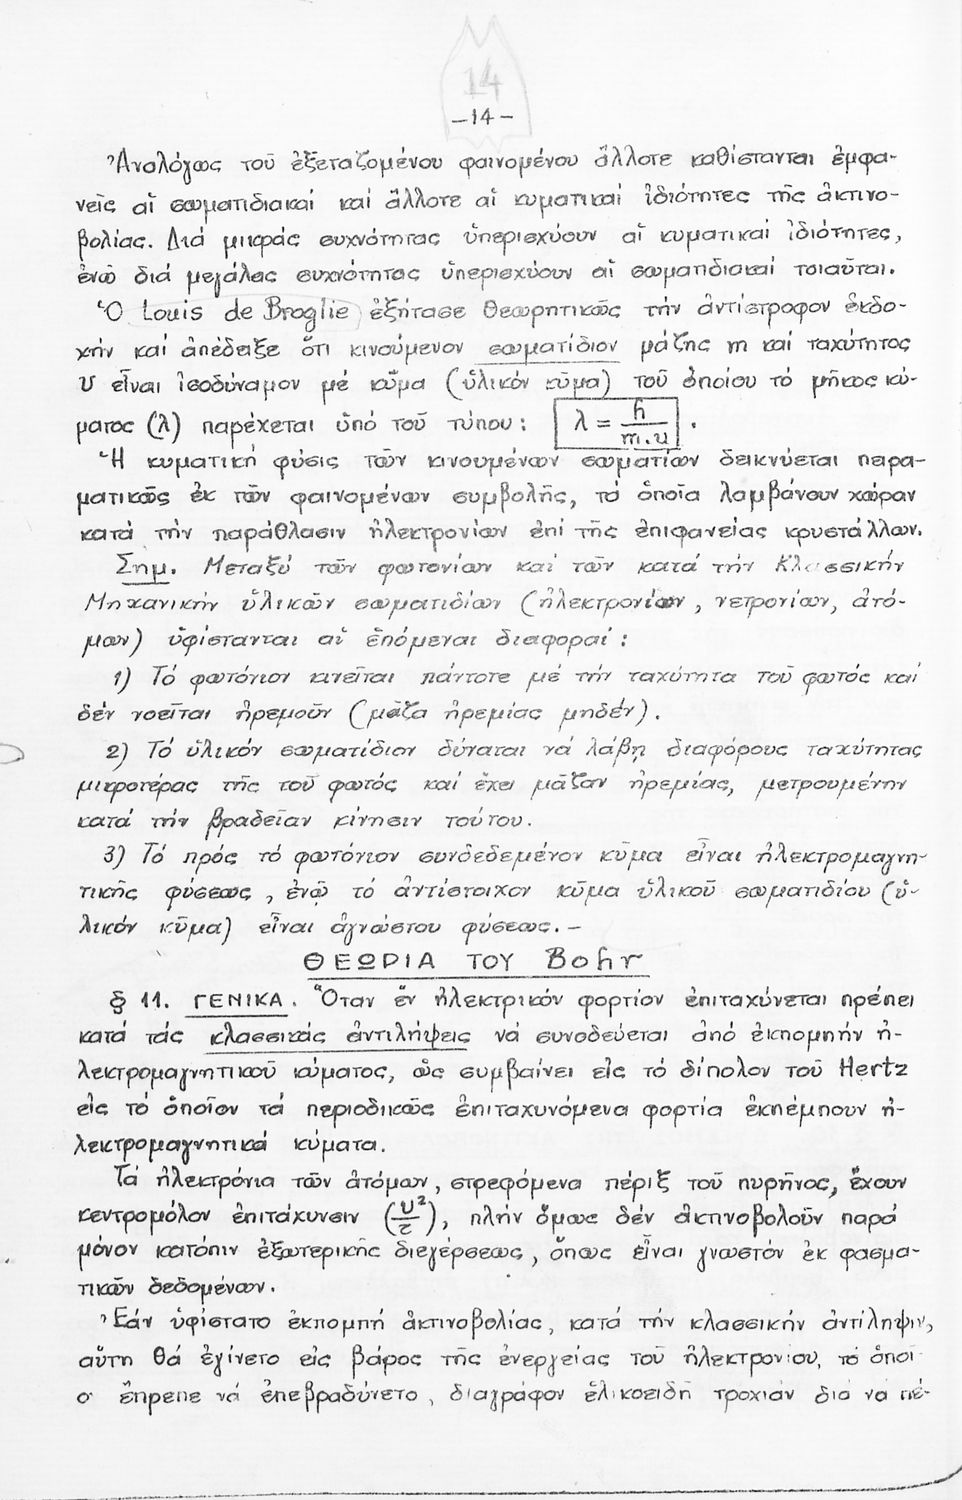 14
-14-
Ἀναλόγως τοῦ ἐξεταζομένου φαινομένου ἄλλοτε καθίστανται ἐμφα-
νεῖς αἱ σωματιδιακαί καί ἄλλοτε αἱ κυματικαί ἰδιότητες τῆς ἀκτινο-
βολίας. Διά μικράς συχνότητας ὑπερισχύουν αἱ κυματικαί ἰδιότητες,
ἐνῶ διά μεγάλας συχνότητας ὑπερισχύουν αἱ σωματιδιακαί τοιαῦται.
Ὁ Louis de Broglie ἐξήτασε θεωρητικῶς τήν ἀντίστροφον ἐκδο-
χήν καί ἀπέδειξε ὅτι κινούμενον σωματίδιον μάζης m καί ταχύτητος
υ εἶναι ἰσοδύναμον μέ κῦμα (ὑλικόν κῦμα) τοῦ ὁποίου τό μῆκος κύ-
ματος (λ) παρέχεται ὑπό τοῦ τύπου: λ = h / m.υ .
Ἡ κυματική φύσις τῶν κινουμένων σωματίων δεικνύεται πειρα-
ματικῶς ἐκ τῶν φαινομένων συμβολῆς, τά ὁποῖα λαμβάνουν χώραν
κατά τήν παράθλασιν ἠλεκτρονίων ἐπί τῆς ἐπιφανείας κρυστάλλων.
Σημ. Μεταξύ τῶν φωτονίων καί τῶν κατά τήν Κλασσικήν
Μηχανικήν ὑλικῶν σωματιδίων (ἠλεκτρονίων, νετρονίων, ἀτό-
μων) ὑφίστανται αἱ ἑπόμεναι διαφοραί:
1) Τό φωτόνιον κινεῖται πάντοτε μέ τήν ταχύτητα τοῦ φωτός καί
δέν νοεῖται ἠρεμοῦν (μᾶζα ἠρεμίας μηδέν).
2) Τό ὑλικόν σωματίδιον δύναται νά λάβῃ διαφόρους ταχύτητας
μικροτέρας τῆς τοῦ φωτός καί ἔχει μᾶζαν ἠρεμίας, μετρουμένην
κατά τήν βραδεῖαν κίνησιν τούτου.
3) Τό πρός τό φωτόνιον συνδεδεμένον κῦμα εἶναι ἠλεκτρομαγνη-
τικῆς φύσεως, ἐνῷ τό ἀντίστοιχον κῦμα ὑλικοῦ σωματιδίου (ὑ-
λικόν κῦμα) εἶναι ἀγνώστου φύσεως.-
ΘΕΩΡΙΑ ΤΟΥ Bohr
§ 11. ΓΕΝΙΚΑ. Ὅταν ἕν ἠλεκτρικόν φορτίον ἐπιταχύνεται πρέπει
κατά τάς κλασσικάς ἀντιλήψεις νά συνοδεύεται ἀπό ἐκπομπήν ἠ-
λεκτρομαγνητικοῦ κύματος, ὡς συμβαίνει εἰς τό δίπολον τοῦ Hertz
εἰς τό ὁποῖον τά περιοδικῶς ἐπιταχυνόμενα φορτία ἐκπέμπουν ἠ-
λεκτρομαγνητικά κύματα.
Τά ἠλεκτρόνια τῶν ἀτόμων, στρεφόμενα πέριξ τοῦ πυρῆνος, ἔχουν
κεντρομόλον ἐπιτάχυνσιν (υ²/τ), πλήν ὅμως δέν ἀκτινοβολοῦν παρά
μόνον κατόπιν ἐξωτερικῆς διεγέρσεως, ὅπως εἶναι γνωστόν ἐκ φασμα-
τικῶν δεδομένων.
Ἐάν ὑφίστατο ἐκπομπή ἀκτινοβολίας, κατά τήν κλασσικήν ἀντίληψιν,
αὕτη θά ἐγίνετο εἰς βάρος τῆς ἐνεργείας τοῦ ἠλεκτρονίου, τό ὁποῖ
ο ἔπρεπε νά ἐπεβραδύνετο, διαγράφον ἑλικοειδῆ τροχιάν διά νά πέ-